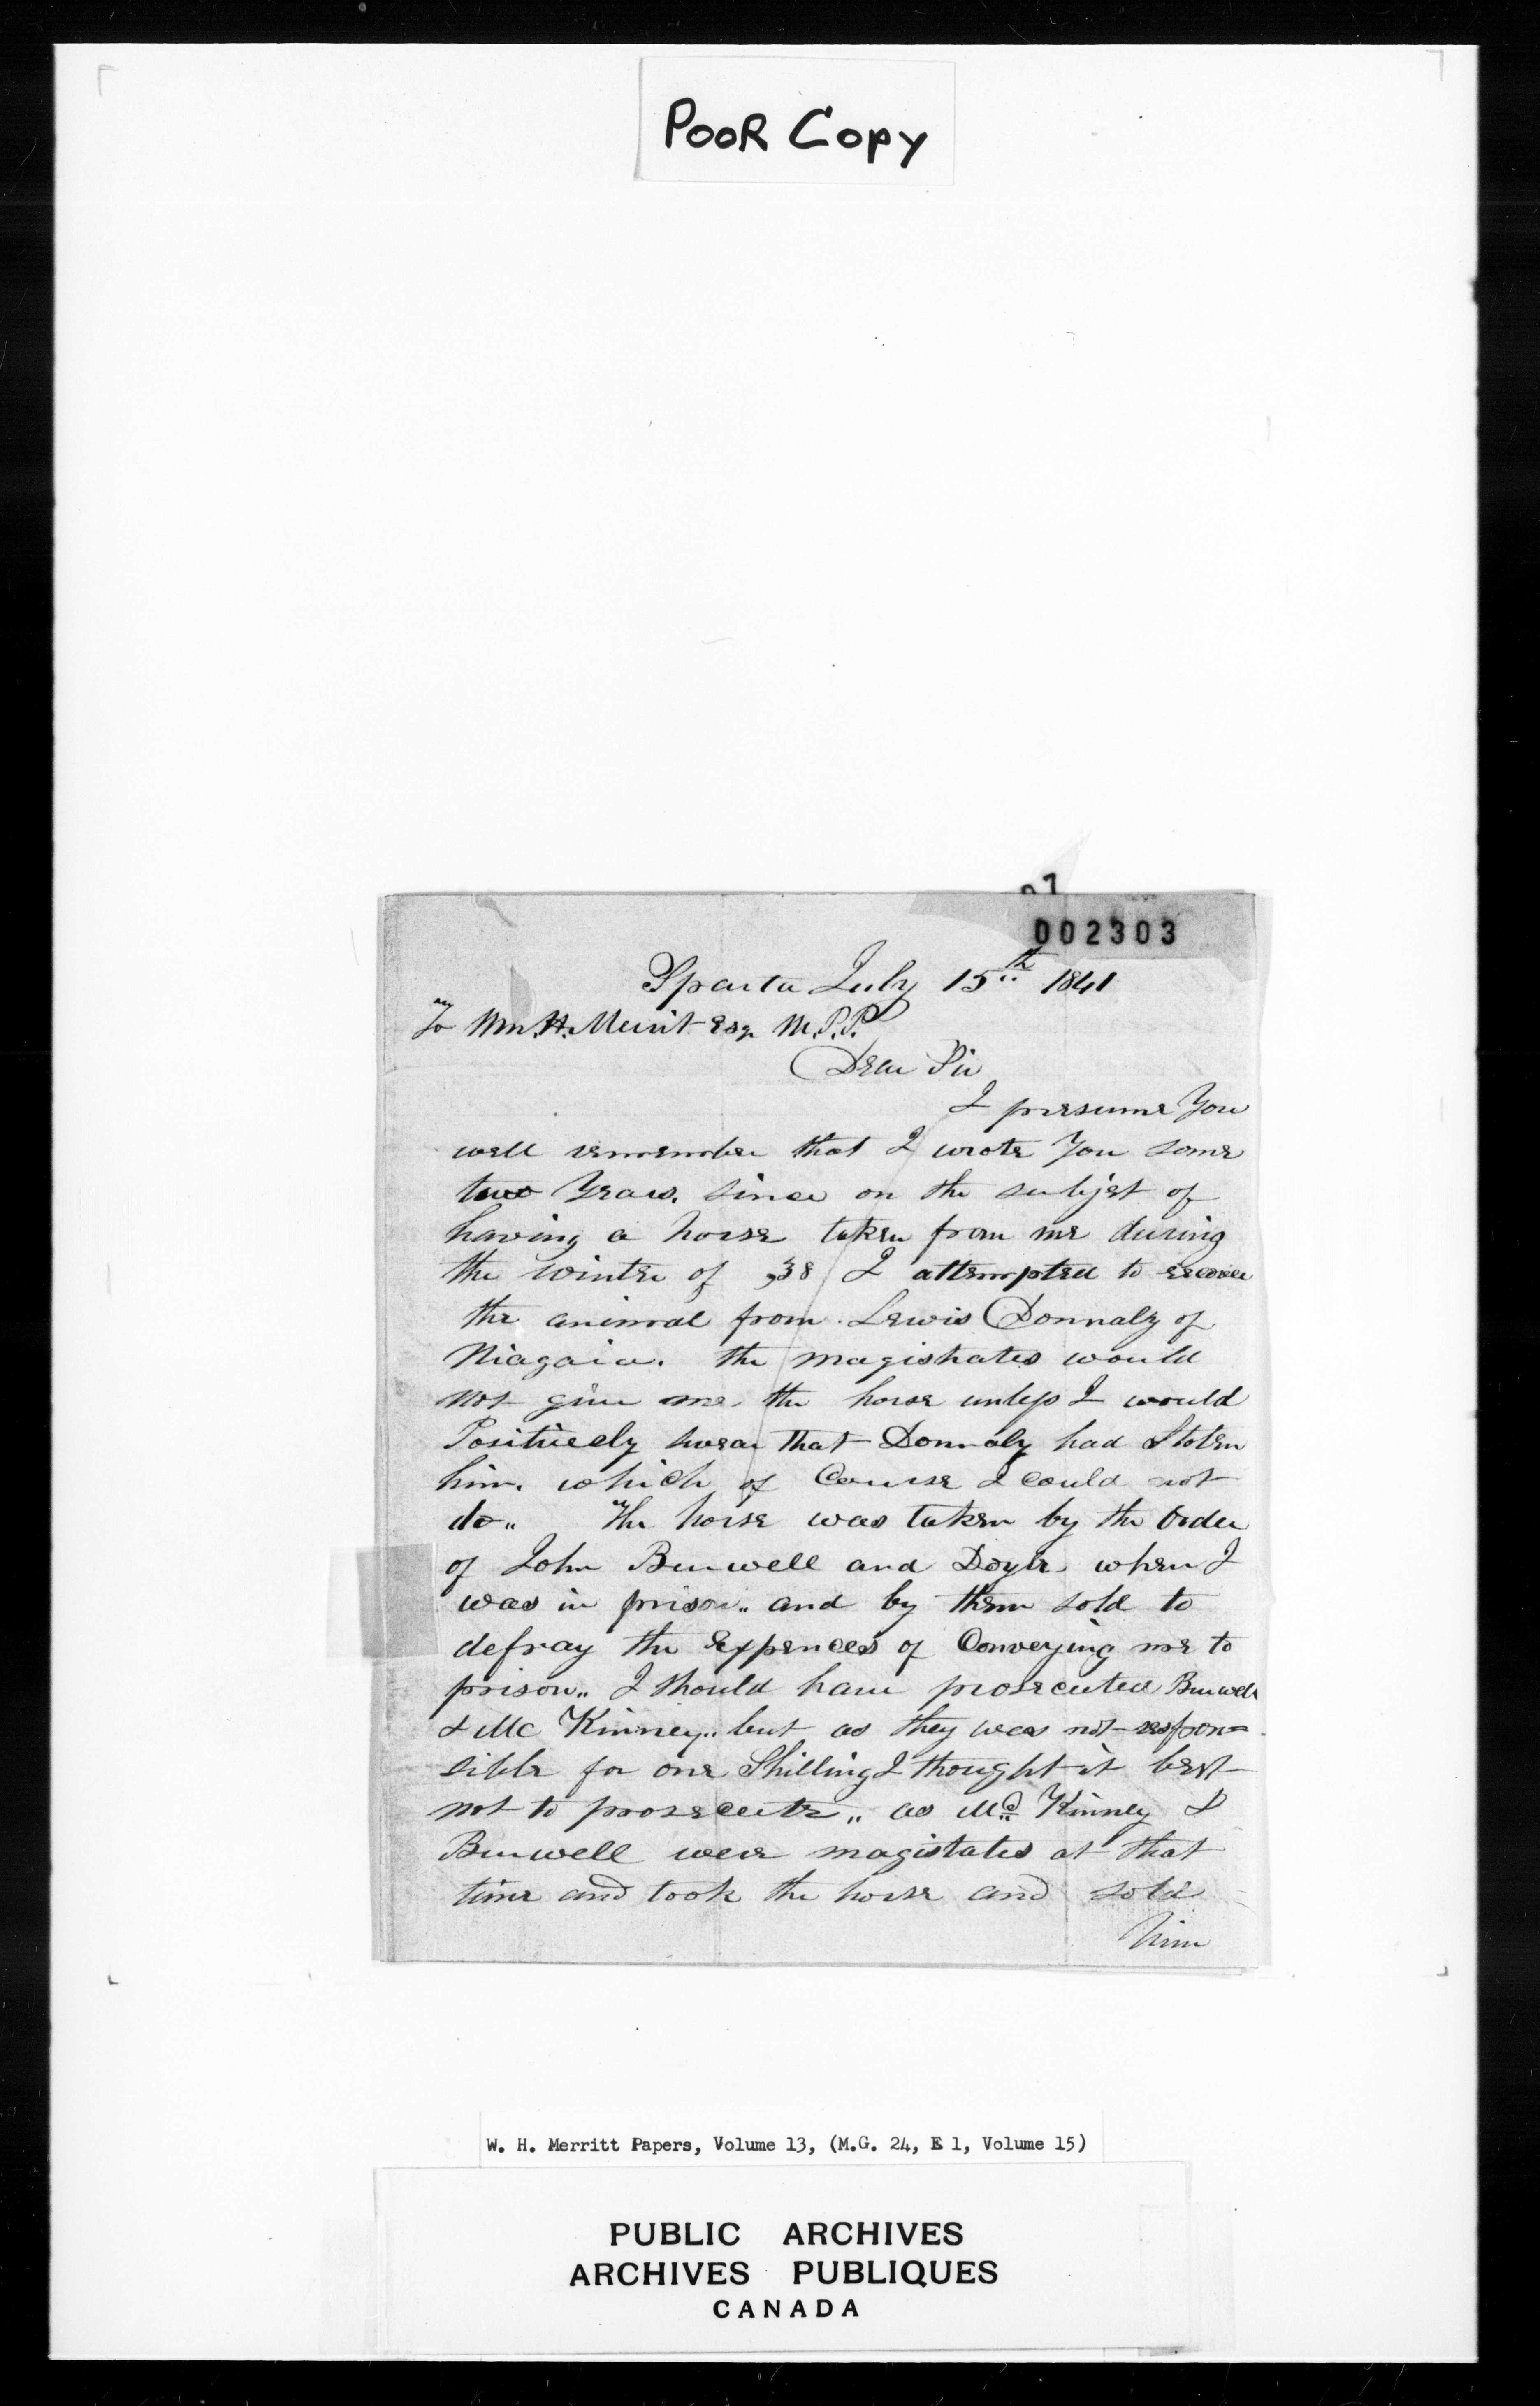 POOR Copy
002303
Sparta July 15th 1841
To Wm. H. Merrit Esq. M.P.P.
Dear Sir
I presume You
well remember that I wrote You some
two Years. since on the subjet of
having a horse taken from me during
the winter of ,38 I attempted to recover
the animal from Lewis Donnaly of
Niagara. the magistrates would
not give me the horse unless I would
Positively swear that Donnaly had Stolen
him. which of Course I could not
do„ The horse was taken by the Order
of John Burwell and Doyle when I
was in prison„ and by them sold to
defray the Expences of Conveying me to
prison„ I should have prosecuted Burwell
& Mc Kinney„ but as they was not respon=
sible for one Shilling I thought it best
not to prosecute„ as Mc Kinney &
Burwell were magistates at that
time and took the horse and sold
him
W. H. Merritt Papers, Volume 13, (M.G. 24, E 1, Volume 15)
PUBLIC ARCHIVES
ARCHIVES PUBLIQUES
CANADA